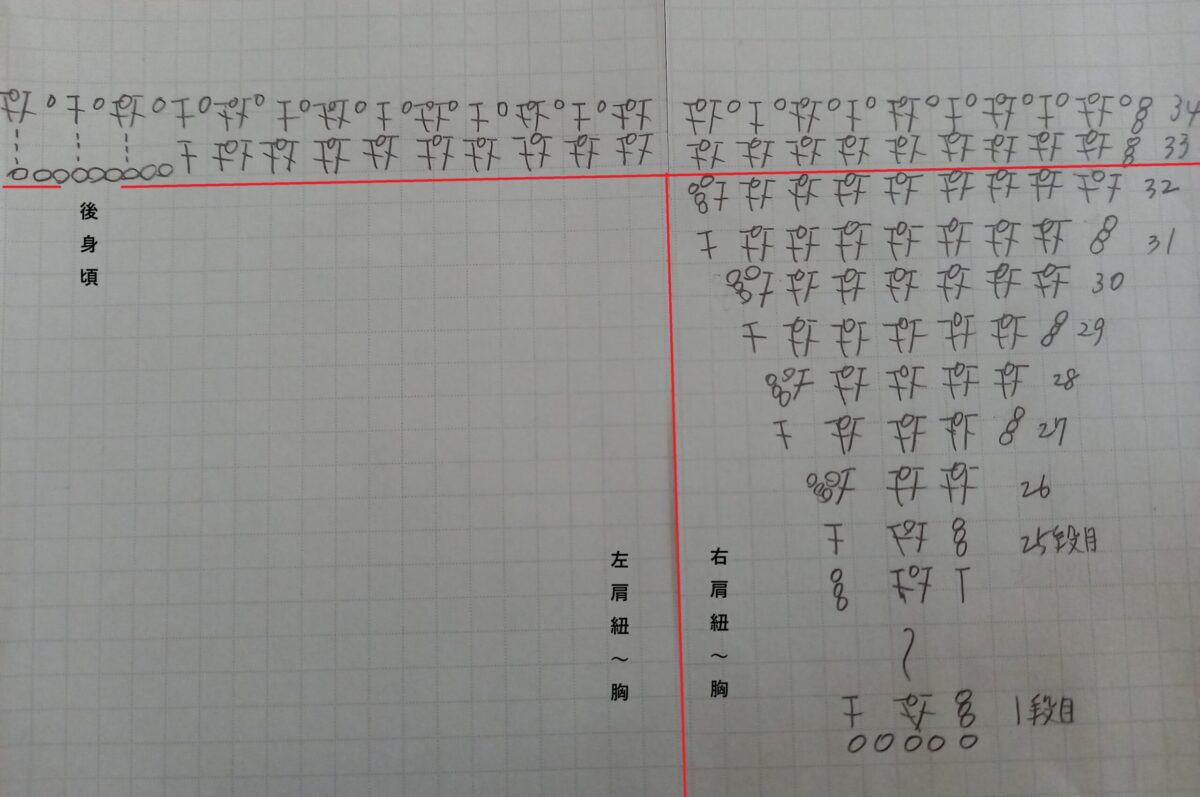 34
33
32
31
30
29
28
27
26
25段目
1段目
後身頃
左肩紐～胸
右肩紐～胸